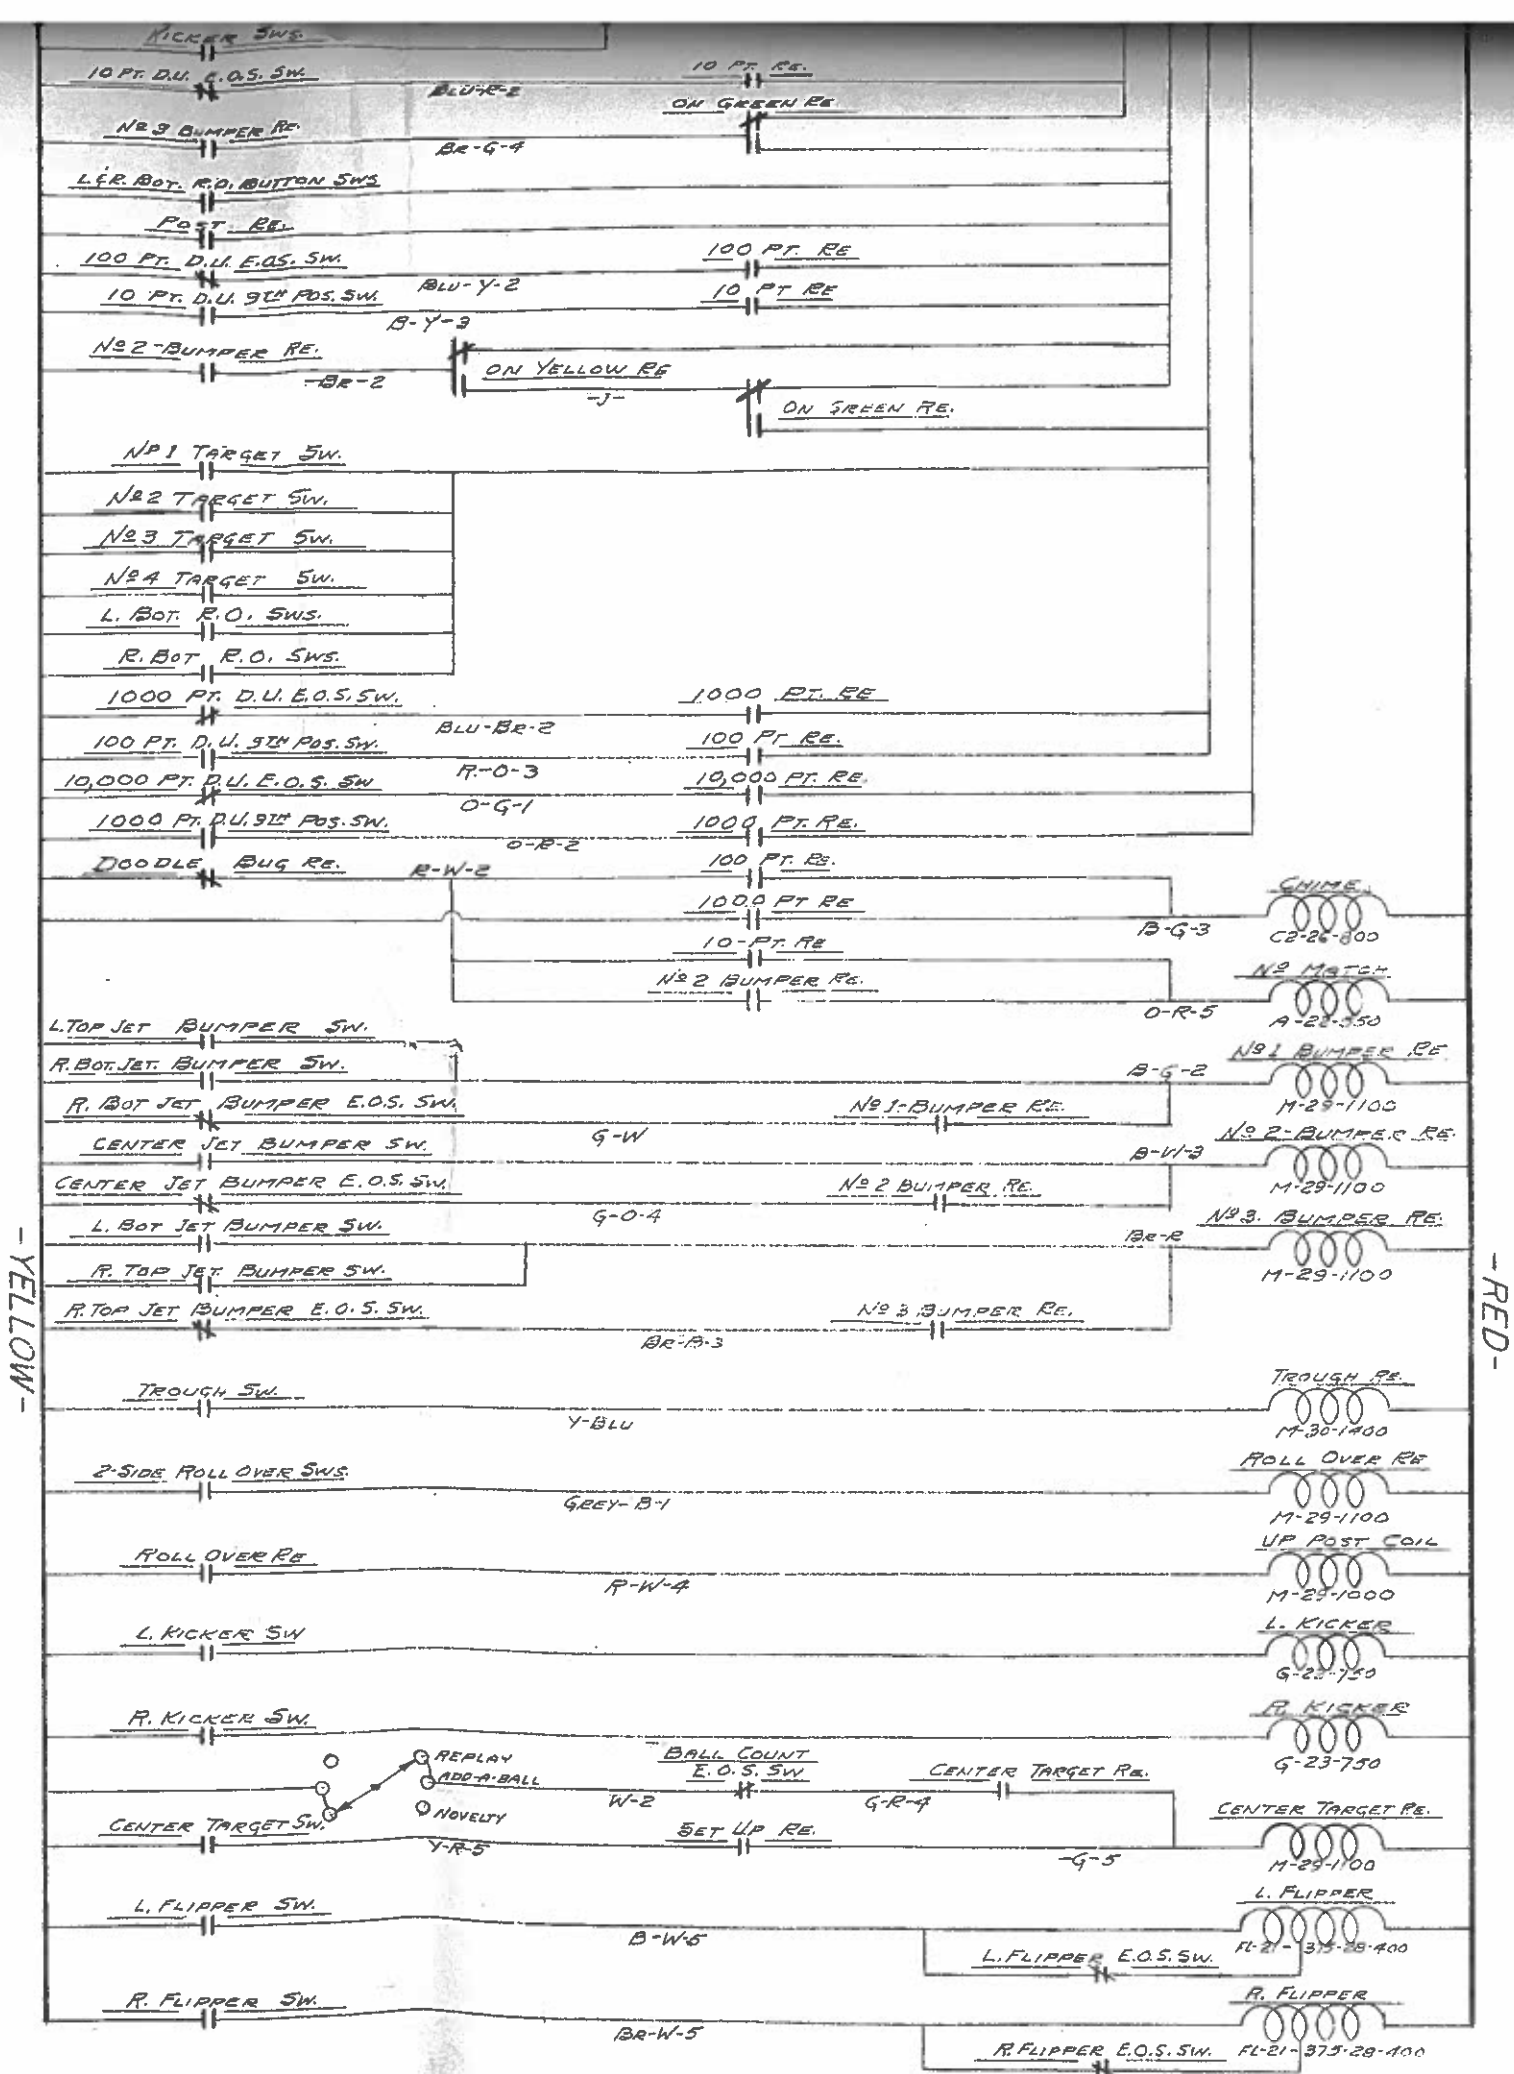 KICKER SWS.
10 PT. D.U. E.O.S. SW.
BLU-R-2
10 PT. RE.
ON GREEN RE
Nº 3 BUMPER RE.
BR-G-4
L&R. BOT. R.O. BUTTON SWS
POST RE.
100 PT. D.U. E.O.S. SW.
BLU-Y-2
100 PT. RE
10 PT. D.U. 9TH POS. SW.
B-Y-3
10 PT RE
Nº 2-BUMPER RE.
-BR-2
ON YELLOW RE
-J-
ON GREEN RE.
Nº 1 TARGET SW.
Nº 2 TARGET SW.
Nº 3 TARGET SW.
Nº 4 TARGET SW.
L. BOT. R.O. SWS.
R. BOT R.O. SWS.
1000 PT. D.U. E.O.S. SW.
BLU-BR-2
1000 PT. RE
100 PT. D.U. 9TH POS. SW.
R-O-3
100 PT RE.
10,000 PT. D.U. E.O.S. SW
O-G-1
10,000 PT. RE.
1000 PT. D.U. 9TH POS. SW.
O-R-2
1000 PT. RE.
DOODLE BUG RE.
R-W-2
100 PT. RE.
1000 PT RE
B-G-3
CHIME
C2-26-800
10-PT. RE
Nº 2 BUMPER RE.
O-R-5
Nº MATCH
A-22-550
L. TOP JET BUMPER SW.
R. BOT. JET. BUMPER SW.
B-G-2
Nº 1 BUMPER RE
M-29-1100
R. BOT JET BUMPER E.O.S. SW.
G-W
Nº 1-BUMPER RE.
CENTER JET BUMPER SW.
B-W-3
Nº 2-BUMPER RE.
M-29-1100
CENTER JET BUMPER E.O.S. SW.
G-O-4
Nº 2 BUMPER RE.
L. BOT JET BUMPER SW.
BR-R
Nº 3. BUMPER RE.
M-29-1100
R. TOP JET. BUMPER SW.
R. TOP JET BUMPER E.O.S. SW.
BR-B-3
Nº 3 BUMPER RE.
-YELLOW-
-RED-
TROUGH SW.
Y-BLU
TROUGH RE.
M-30-1400
2-SIDE ROLL OVER SWS.
GREY-B-1
ROLL OVER RE
M-29-1100
ROLL OVER RE
R-W-4
UP POST COIL
M-29-1000
L. KICKER SW
L. KICKER
G-23-750
R. KICKER SW.
R. KICKER
G-23-750
REPLAY
ADD-A-BALL
NOVELTY
W-2
BALL COUNT
E.O.S. SW
G-R-4
CENTER TARGET RE.
CENTER TARGET SW.
Y-R-5
SET UP RE.
-G-5
CENTER TARGET RE.
M-29-1100
L. FLIPPER SW.
B-W-5
L. FLIPPER
FL-21-375-28-400
L. FLIPPER E.O.S. SW.
R. FLIPPER SW.
BR-W-5
R. FLIPPER
FL-21-375-28-400
R. FLIPPER E.O.S. SW.